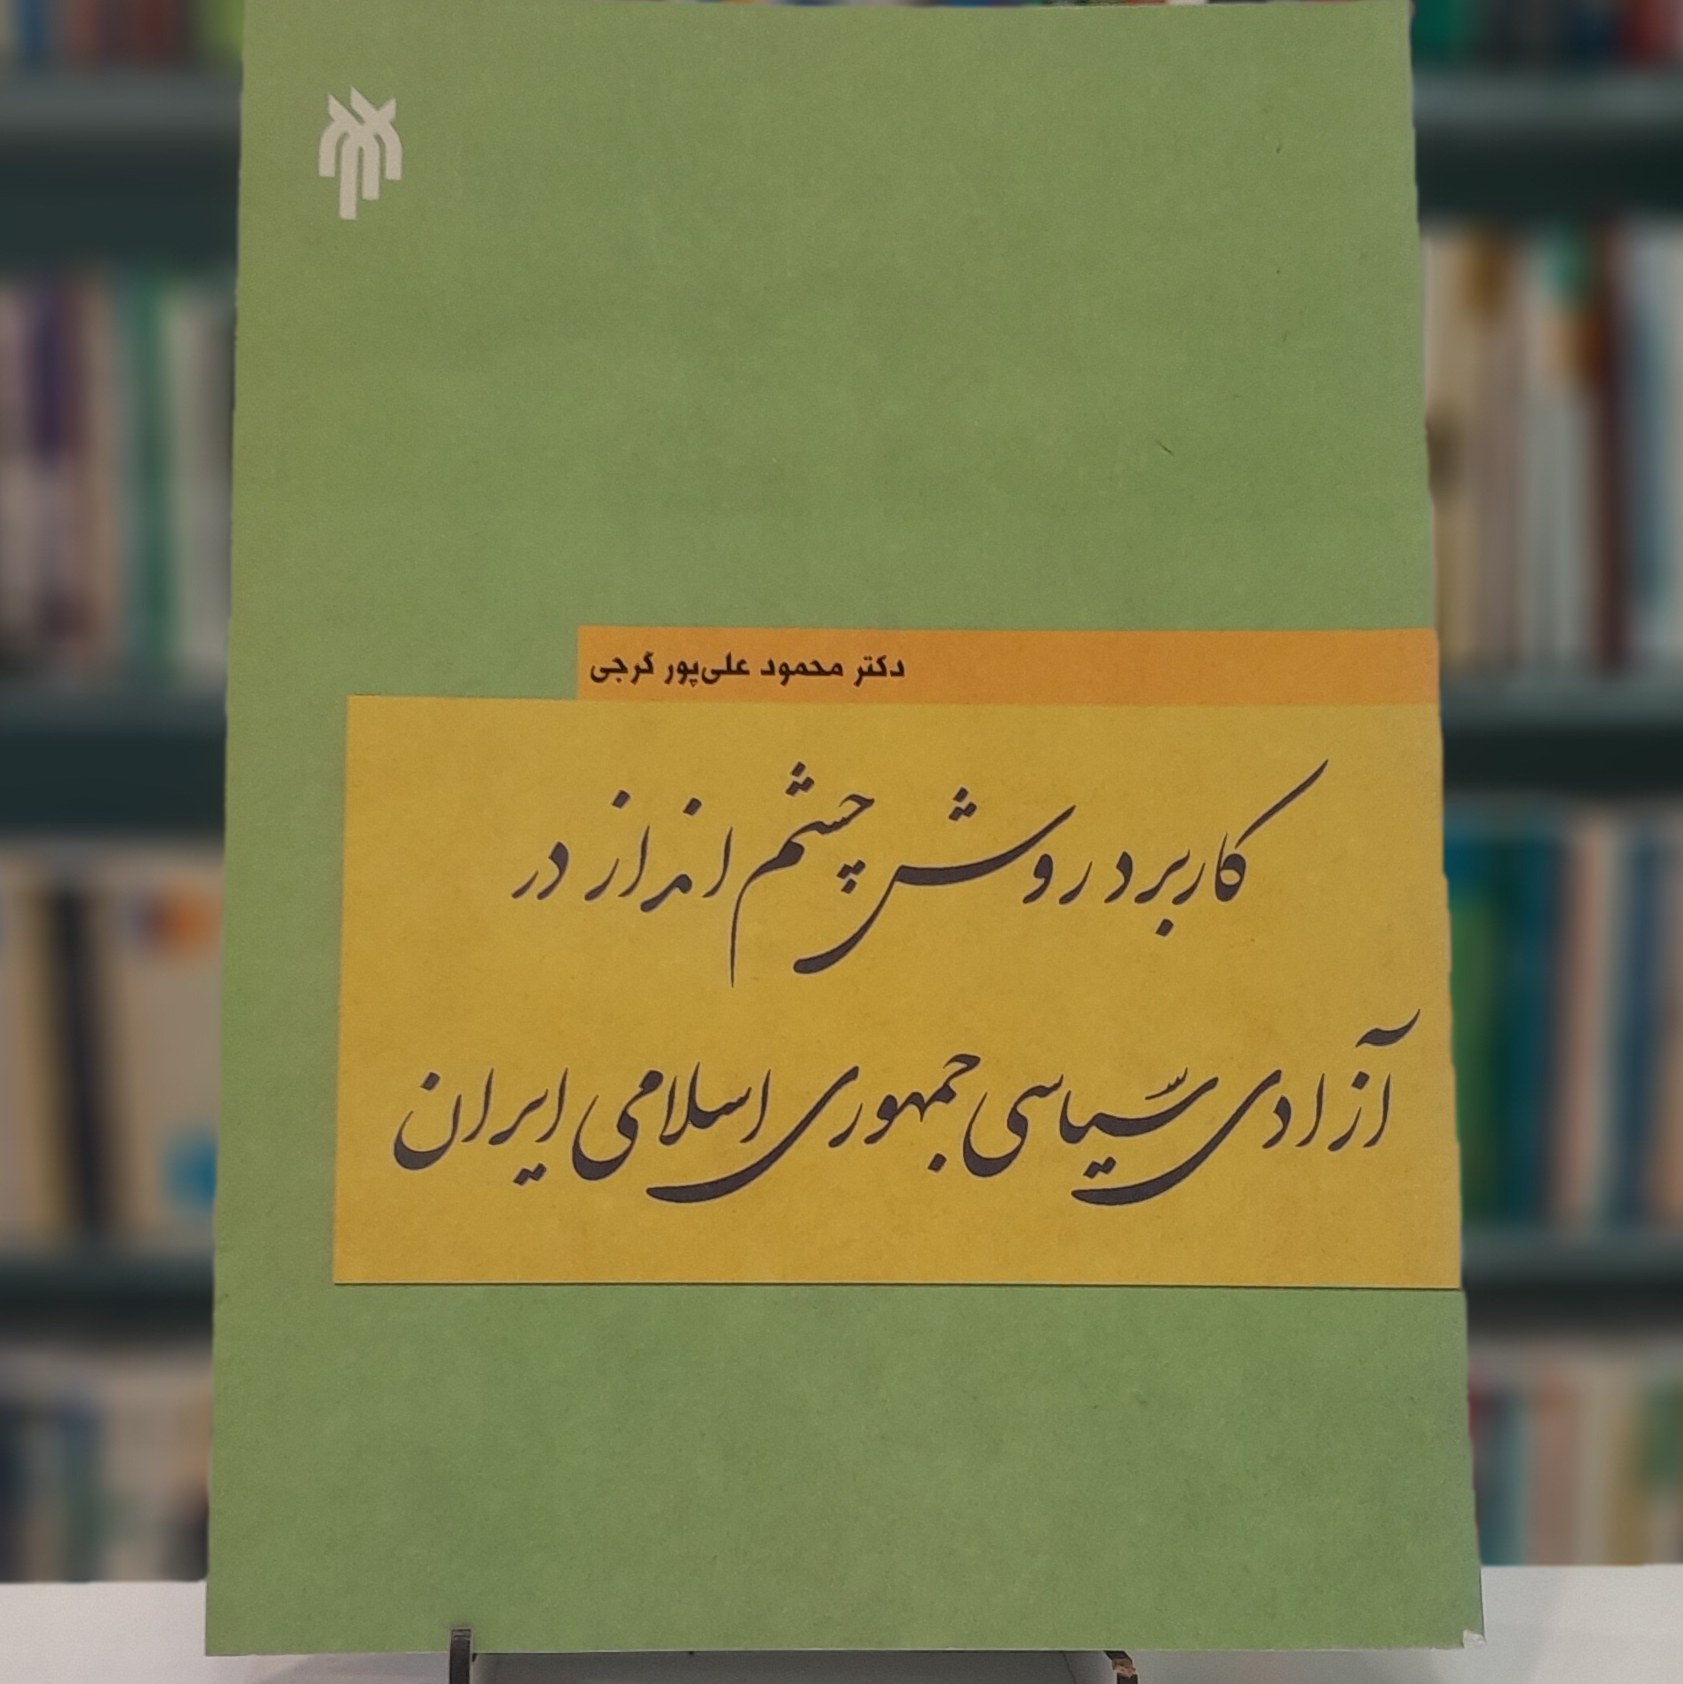 دکتر محمود علی‌پور گرجی
کاربرد روش چشم انداز در
آزادی سیاسی جمهوری اسلامی ایران